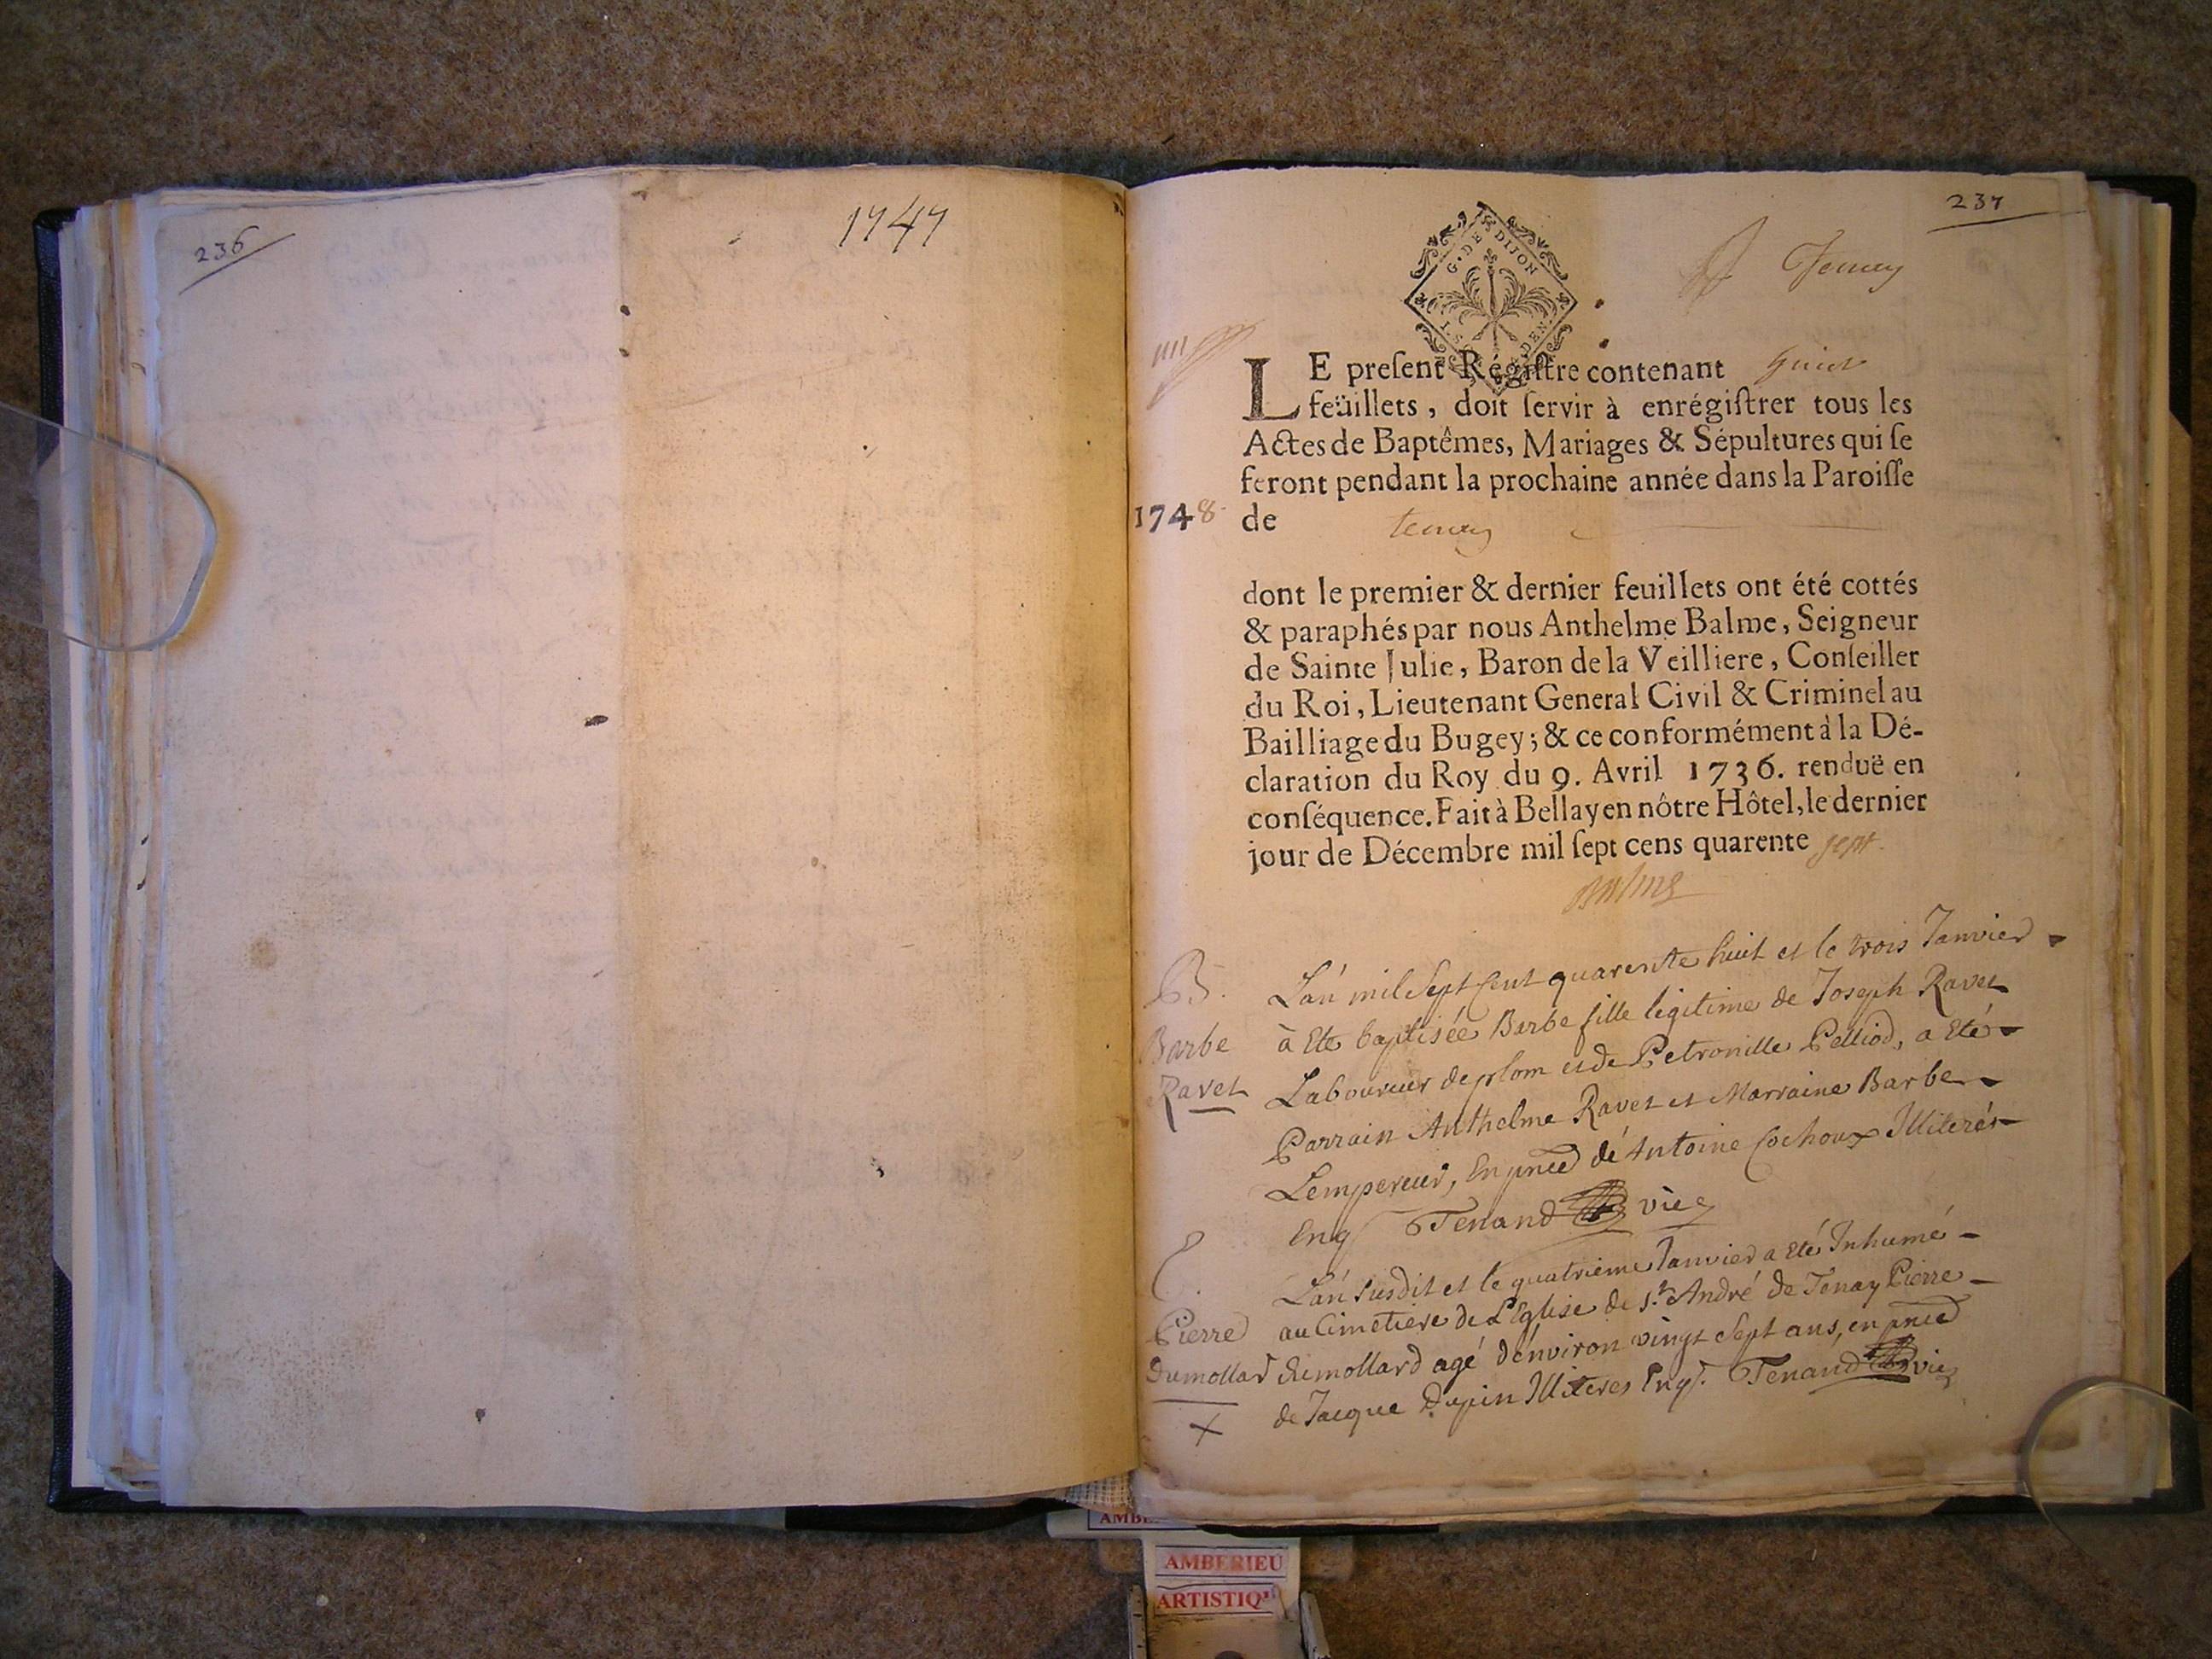 236
1747
237
G. DE DIJON
Tenay
LE preſent Régiſtre contenant huict
feüillets, doit ſervir à enrégiſtrer tous les
Actes de Baptêmes, Mariages & Sépultures qui ſe
feront pendant la prochaine année dans la Paroiſſe
1748 de tenay
dont le premier & dernier feuillets ont été cottés
& paraphés par nous Anthelme Balme, Seigneur
de Sainte Julie, Baron de la Veilliere, Conſeiller
du Roi, Lieutenant General Civil & Criminel au
Bailliage du Bugey; & ce conformément à la Dé-
claration du Roy du 9. Avril 1736. renduë en
conſéquence. Fait à Bellay en nôtre Hôtel, le dernier
jour de Décembre mil ſept cens quarente sept.
Balme
B.
Barbe
Ravet
L'an mil Sept Cent quarente huit et le trois Janvier
à Eté baptisée Barbe fille legitime de Joseph Ravet
Laboureur de plom et de Petronille Pelliod, a Eté
Parrain Anthelme Ravet et Marraine Barbe
Lempereur, En pnce de Antoine Cochoux Illiterés
Enq Tenand vic
Pierre
Dumollard
L'an susdit et le quatrieme Janvier a Eté Inhumé
au Cimetiere de L'Eglise de St. André de Tenay Pierre
Dumollard agé d'environ vingt Sept ans, en pnce
de Jacque Dupin Illiteres Enq. Tenand vic
AMBERIEU
ARTISTIQ